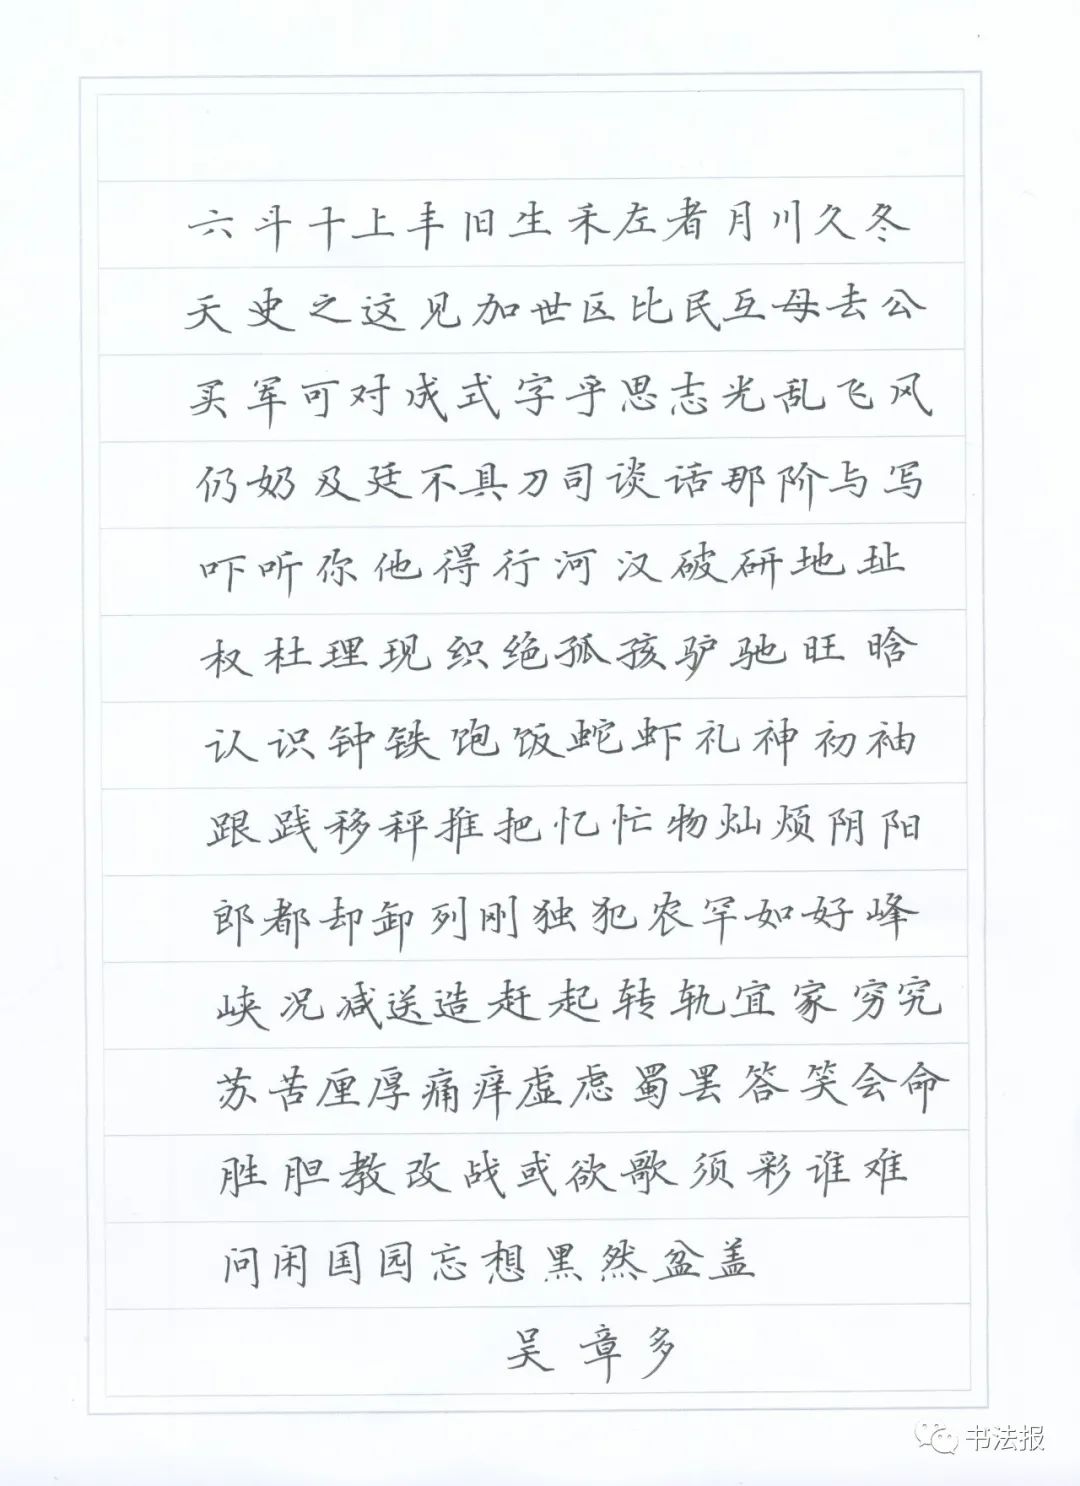 六斗十上丰旧生禾左者月川久冬
天史之这见加世区比民互母去公
买军可对成式字乎思志光乱飞风
仍奶及廷不具刀司谈话那阶与写
吓听你他得行河汉破研地址
权杜理现织绝孤孩驴驰旺晗
认识钟铁饱饭蛇虾礼神初袖
跟践移秤推把忆忙物灿烦阴阳
郎都却卸列刚独犯农罕如好峰
峡况减送造赶起转轨宜家穷究
苏苦厘厚痛痒虚虑蜀罢答笑会命
胜胆教改战或欲歌须彩谁难
问闲国园忘想黑然盆盖
吴章多
书法报